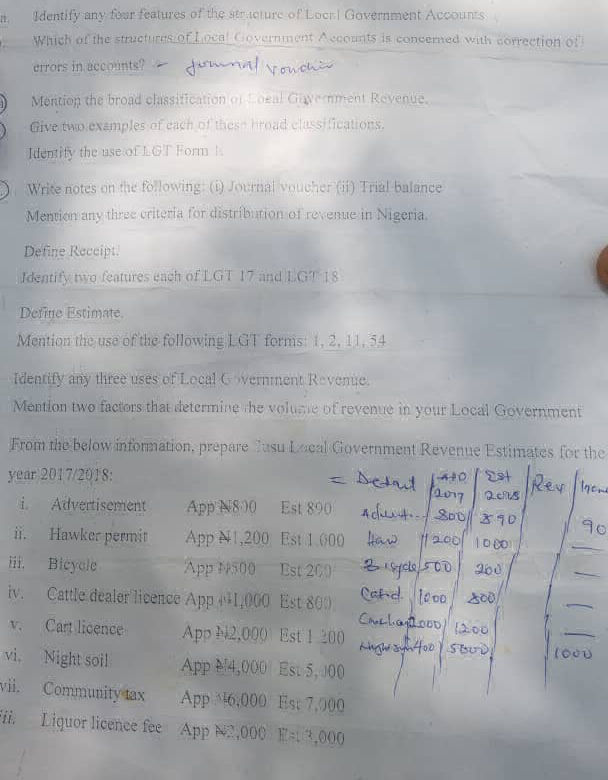 Identify any four features of the structure of Local Government Accounts
Which of the structures of Local Government Accounts is concerned with correction of
errors in accounts? - Journal voucher
Mention the broad classification of Local Government Revenue.
Give two examples of each of these broad classifications.
Identify the use of LGT Form 1.
Write notes on the following: (i) Journal voucher (ii) Trial balance
Mention any three criteria for distribution of revenue in Nigeria.
Define Receipt.
Identify two features each of LGT 17 and LGT 18
Define Estimate.
Mention the use of the following LGT forms: 1, 2, 11, 54
Identify any three uses of Local Government Revenue.
Mention two factors that determine the volume of revenue in your Local Government
From the below information, prepare Local Government Revenue Estimates for the
year 2017/2018:
i. Advertisement App ₦800 Est 890
ii. Hawker permit App ₦1,200 Est 1.000
iii. Bicycle App ₦500 Est 200
iv. Cattle dealer licence App ₦1,000 Est 800
v. Cart licence App ₦2,000 Est 1 200
vi. Night soil App ₦4,000 Est 5,000
vii. Community tax App ₦6,000 Est 7,000
iii. Liquor licence fee App ₦2,000 Est 3,000
= Detail 2017 Est 2018 Rev
800 890 90
Haw 1200 1000 —
Bicycle 500 200 —
1000 800 —
2000 1200 —
400 5000 1000